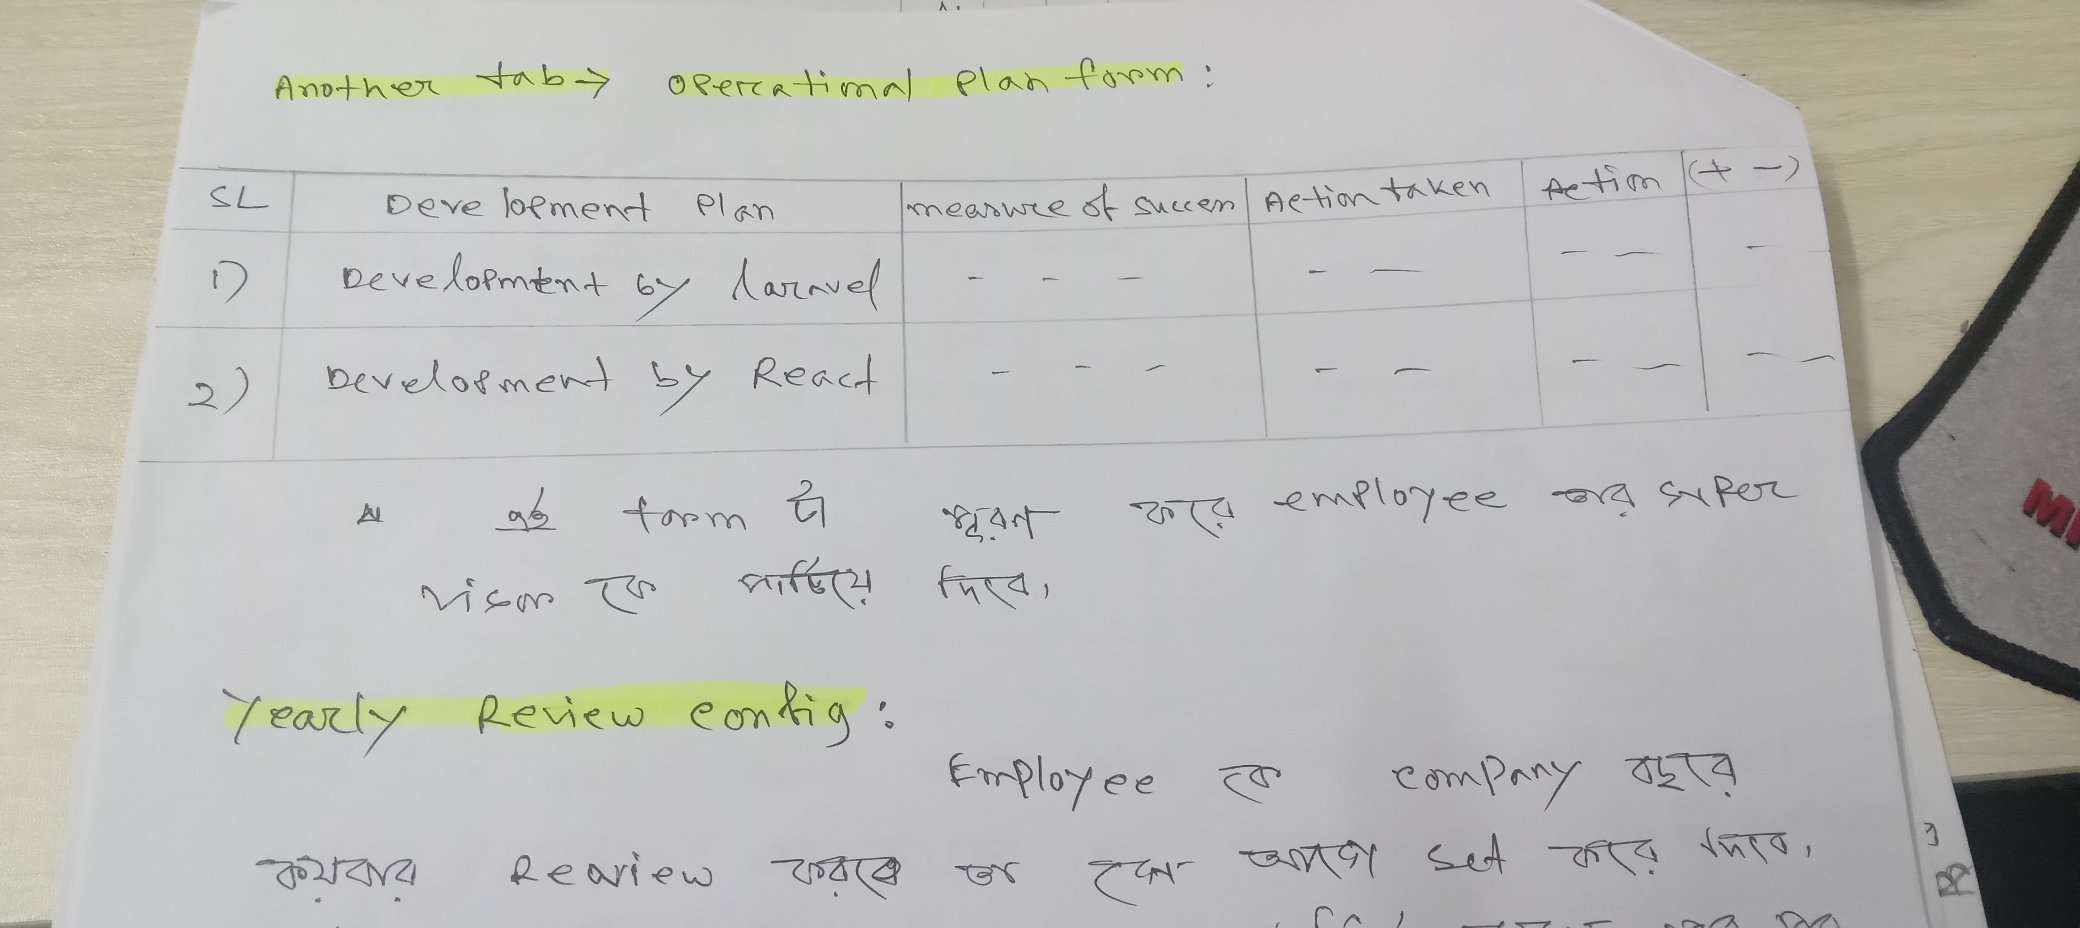 Another tab → Operational Plan form:
SL Development Plan measure of success Action taken Action (+ -)
1) Development by laravel - - - - - - - -
2) Development by React - - - - - - - - -
এই form টা পূরণ করে employee তার super
visor কে পাঠিয়ে দিবে,
Yearly Review config:
Employee কে company বছরে
কয়বার Review করবে তা আগে set করে দিবে,
MI